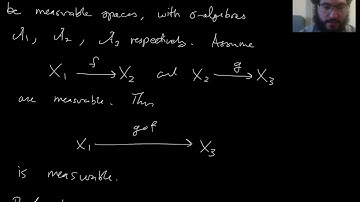 be measurable spaces, with σ-algebras
𝒜₁, 𝒜₂, 𝒜₃ respectively. Assume
X₁ —f→ X₂ and X₂ —g→ X₃
are measurable. Then
X₁ —g∘f→ X₃
is measurable.